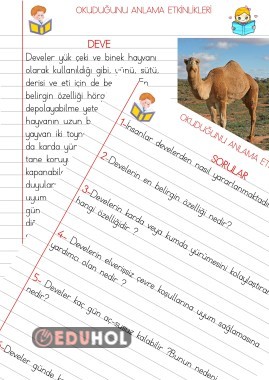 OKUDUĞUNU ANLAMA ETKİNLİKLERİ
DEVE
Develer yük çeki ve binek hayvanı
olarak kullanıldığı gibi, yünü, sütü,
derisi ve eti için de be
belirgin özelliği hörg
depolayabilme yete
hayvanın uzun b
yayvan iki toyn
da karda yür
tane koruyu
kapanabil
duyular
uyum
gün
diğ
OKUDUĞUNU ANLAMA ETK
SORULAR
1-İnsanlar develerden nasıl yararlanmaktadı
2-Develerin en belirgin özelliği nedir?
3-Develerin karda veya kumda yürümesini kolaylaştıran
hangi özelliğidir. ?
4- Develerin elverişsiz çevre koşullarına uyum sağlamasına
yardımcı olan nedir ?
5- Develer kaç gün aç-susuz kalabilir .?Bunun nedeni
nedir?
-Develer günde k
EDUHOL